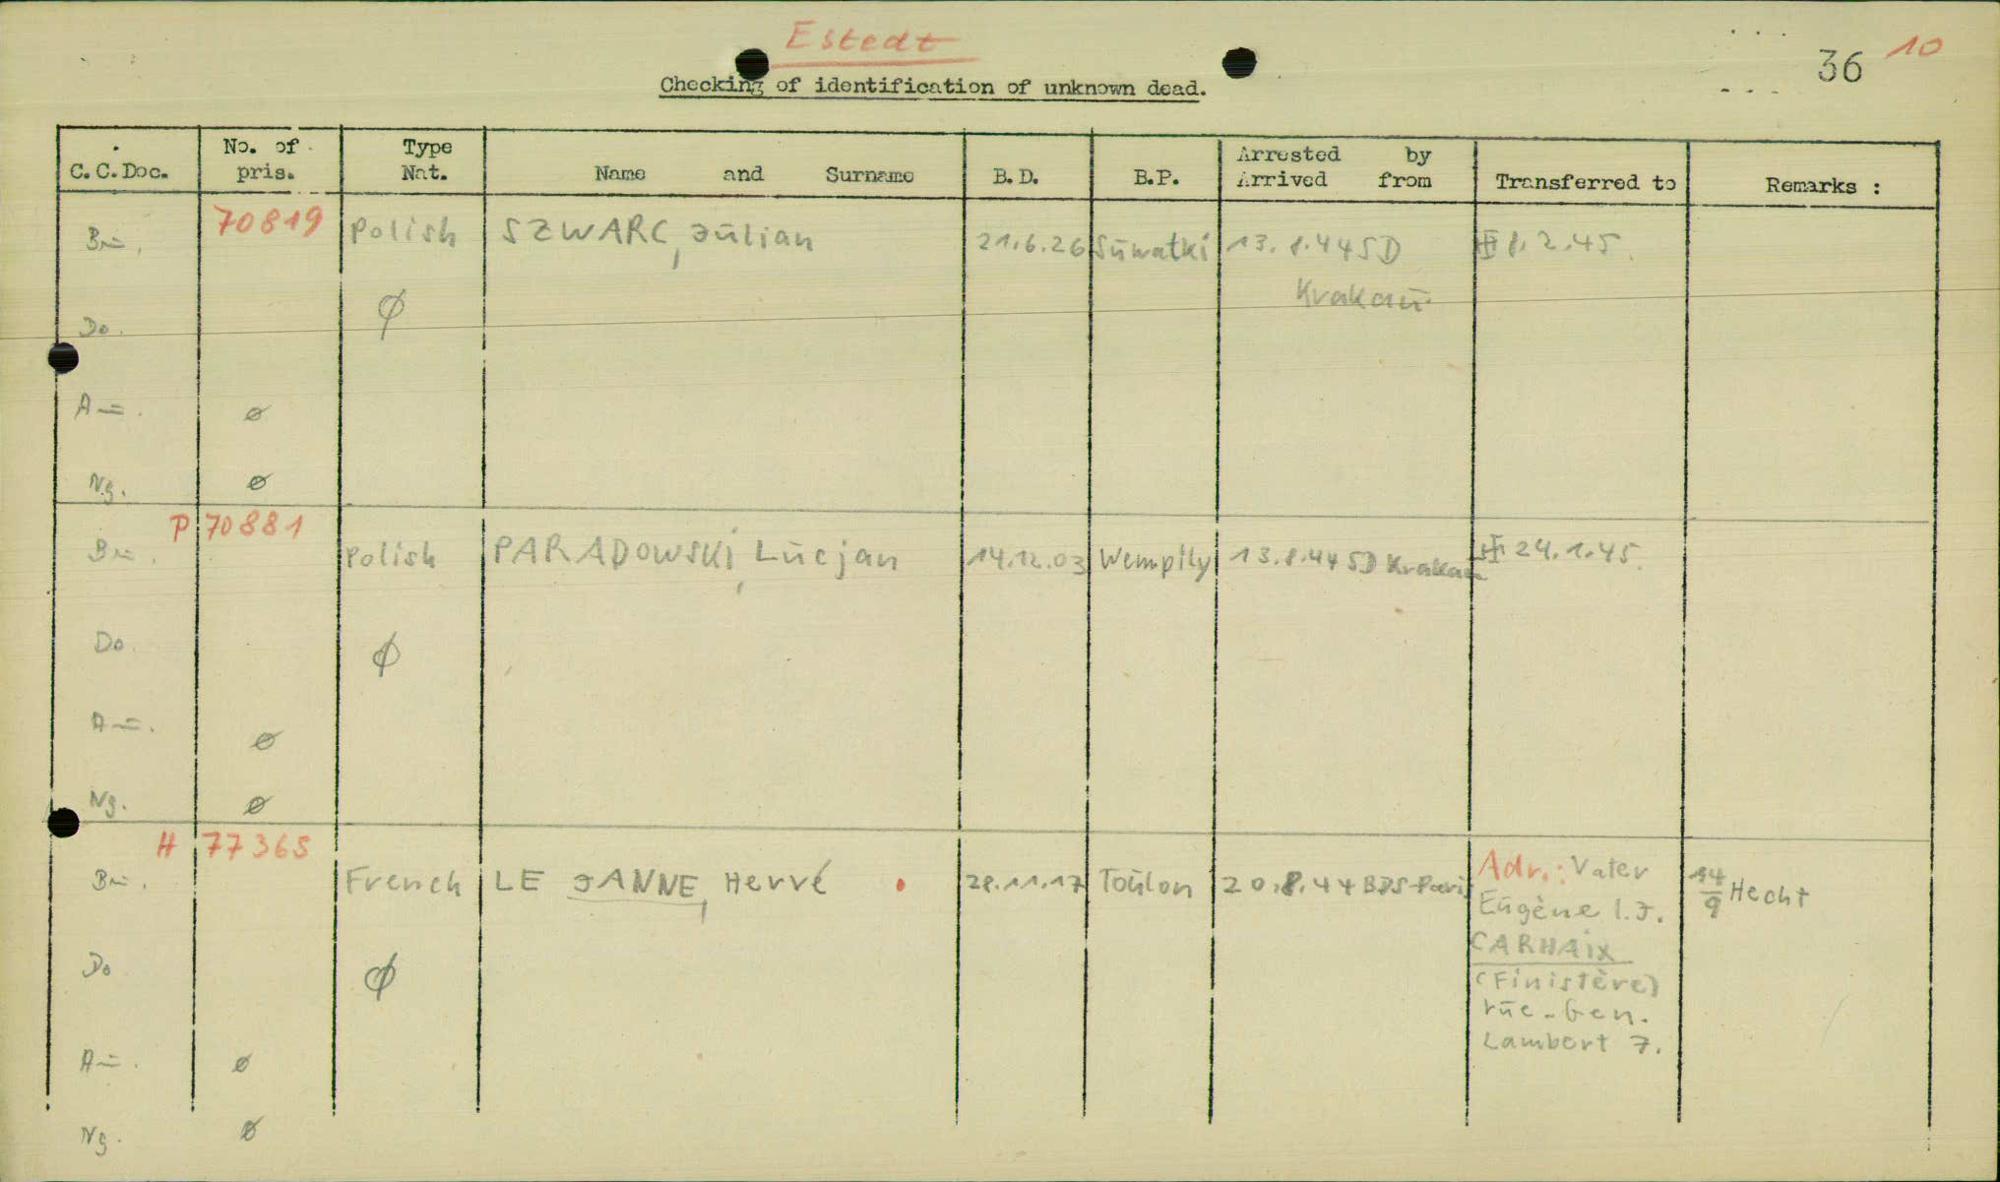 Estedt
Checking of identification of unknown dead.
36 10
C.C.Doc. No. of pris. Type Nat. Name and Surname B.D. B.P. Arrested by Arrived from Transferred to Remarks :
Bū. 70819 Polish SZWARC, Jūlian 21.6.26 Sūwatki 13.8.44 SD 8.2.45.
Krakaū
Do. ϕ
Aū. ø
Ng. ø
P 70881
Bū. Polish PARADOWSKI, Lūcjan 14.12.03 Wempily 13.8.44 SD Krakau 24.1.45.
Do. ϕ
Aū. ø
Ng. ø
H 77365
Bū. French LE JANNE, Hervé 28.11.17 Toūlon 20.8.44 BDS-Paris Adr.: Vater 14/9 Hecht
Eūgène l.J.
CARHAIX
(Finistère)
rūe-Gen.
Lambert 7.
Do ϕ
Aū. ø
Ng. ø